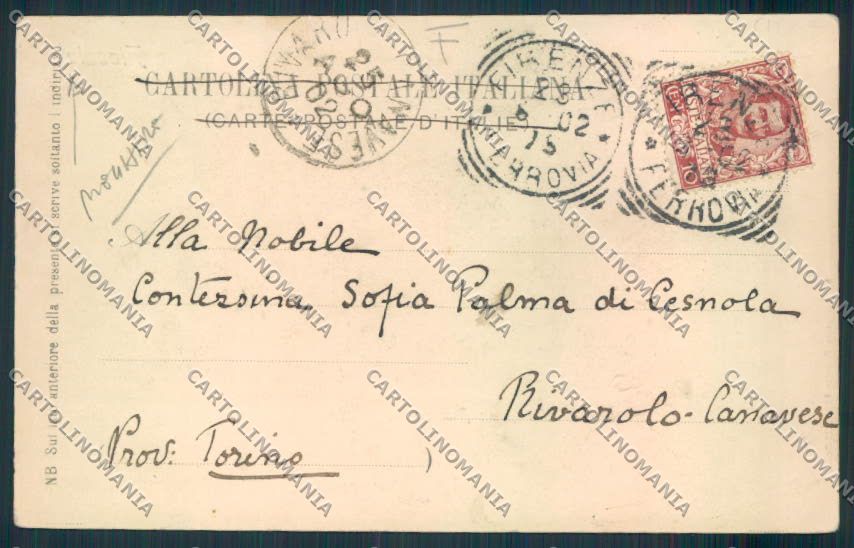 CARTOLINA POSTALE ITALIANA
(CARTE POSTALE D'ITALIE)
FIRENZE
FERROVIA
FERROVIA
Alla Nobile
Contessina Sofia Palma di Cesnola
Rivarolo-Canavese
Prov: Torino
NB Sul lato anteriore della presente si scrive soltanto l'indirizzo
CARTOLINOMANIA